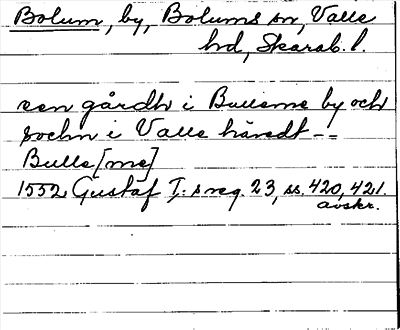 Bolum, by, Bolums sn, Valle
hd, Skarab. l.
een gårdh i Bulleme by och
sochn i Valle häredt --
Bulle[me]
1552 Gustaf I:s reg. 23, ss. 420, 421.
avskr.